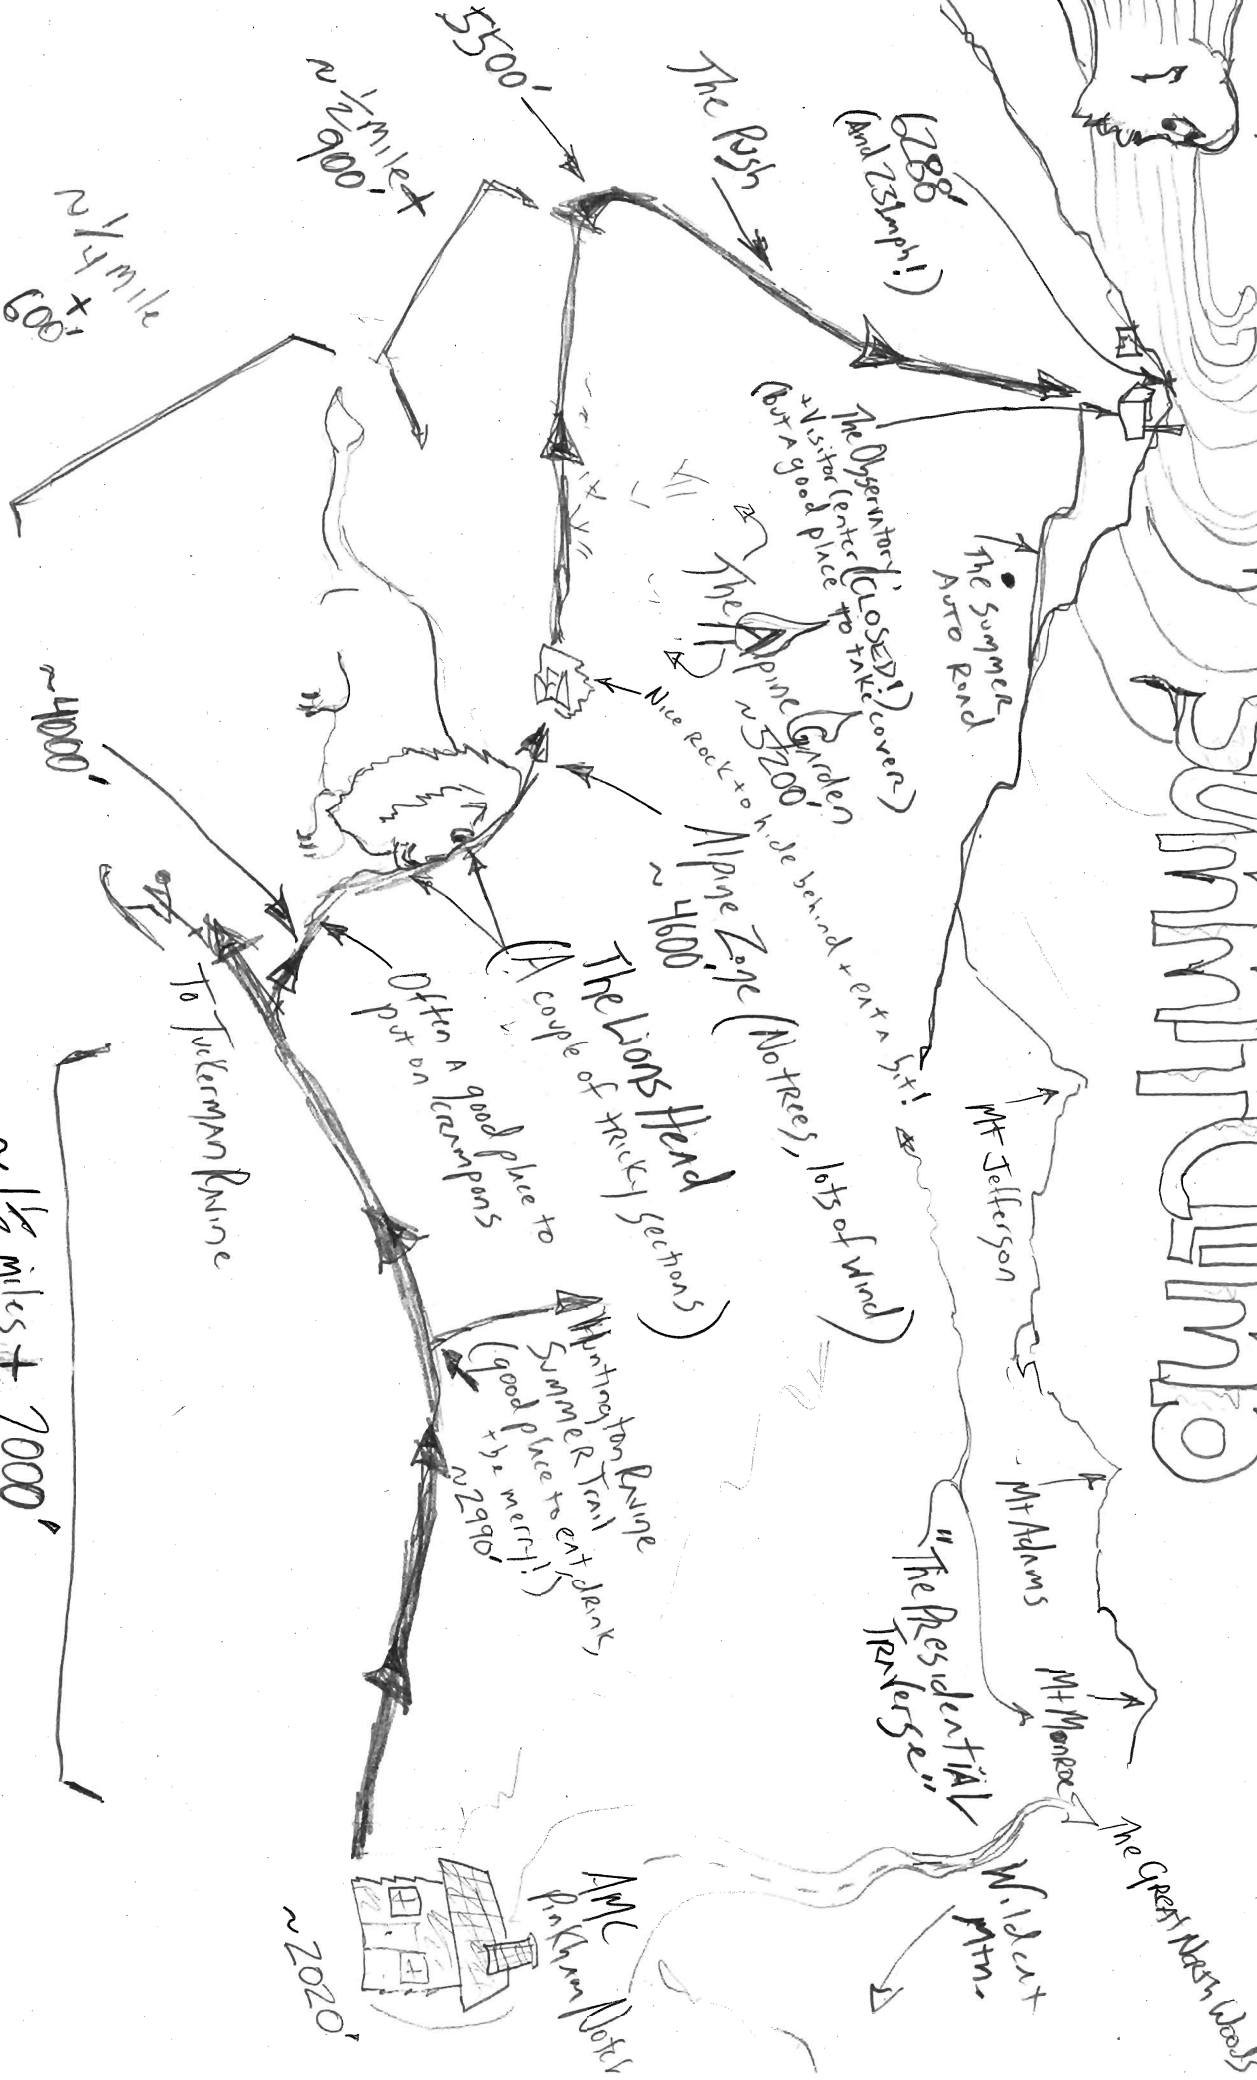 Summit Climb
6288'
(And 231mph!)
The Push
5500'
~ 1/2 mile +
900'
~ 1/4 mile
+
600'
The Observatory
+ Visitor Center (CLOSED!)
(but a good place to take cover)
The Summer
Auto Road
The Alpine Garden
~ 5200'
Nice rock to hide behind + eat a bit!
Alpine Zone (No trees, lots of wind)
~ 4600'
The Lions Head
(A couple of tricky sections)
Often a good place to
put on crampons
~4000'
To Tuckerman Ravine
~ 1 1/2 miles + 2000'
Huntington Ravine
Summer Trail
(good place to eat, drink,
+ be merry!)
~2990'
Mt Jefferson
Mt Adams
Mt Monroe
"The Presidential
Traverse"
The Great North Woods
Wildcat
Mtn.
AMC
Pinkham Notch
~2020'